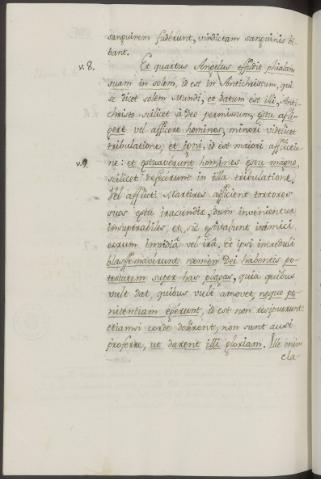 sanguinem fuderunt, vindictam sanguinis bi-
bant.
v. 8. Et quartus Angelus effudit phialam
suam in solem, id est in Antichristum, qui
se dicet solem Mundi, et datum est illi, Anti-
christo scilicet a Deo permissum, estu affli-
gere vel afficere homines, minori videlicet
tribulatione, et igni, id est maiori afflictio
v. 9 ne: et estuaverunt homines estu magno,
scilicet defecerunt in illa tribulatione.
Vel afflicti Martires afficient tortores
suos estu iracundie, dum invenientur
insuperabiles, et, sic estuabunt inimici
eorum invidia vel ira. Et ipsi increduli
blasfemaverunt nomen Dei habentis po-
testatem super has plagas, quia quibus
vult dat, quibus vult amovet, neque pe-
nitentiam egerunt, id est non resipuerunt:
etiamsi corde dolerent, non sunt ausi
proferre, ut darent illi gloriam. Ille enim
cla-